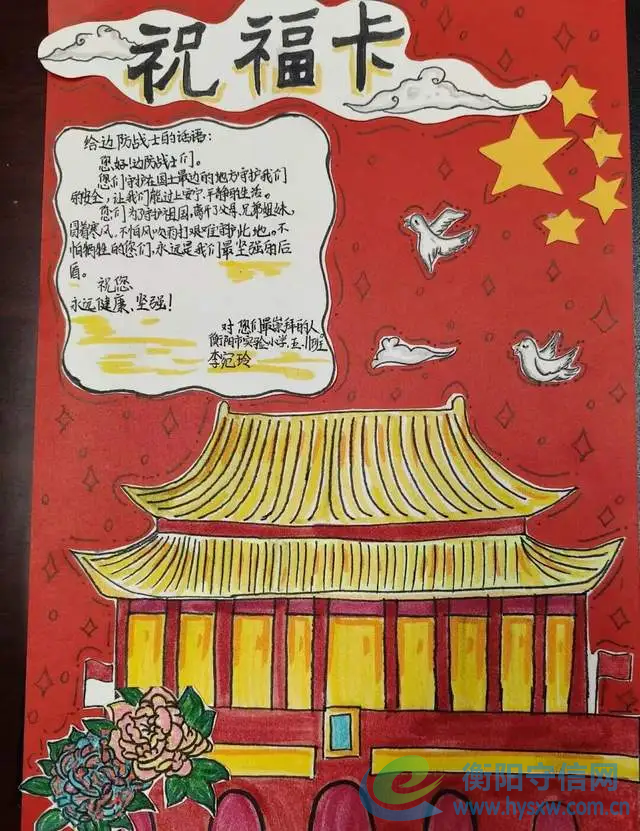 祝福卡
给边防战士的话语：
您好！边防战士们。
您们守护在国土最边的地方守护我们
的安全，让我们能过上安宁、平静的生活。
您们为了守护祖国，离开了父母、兄弟姐妹，
冒着寒风，不怕风吹雨打艰难守护此地。不
怕牺牲的您们，永远是我们最坚强的后
盾。
祝您
永远健康、坚强！
对您们最崇拜的人
衡阳市实验小学五.11班
李记玲
衡阳守信网
www.hysxw.com.cn